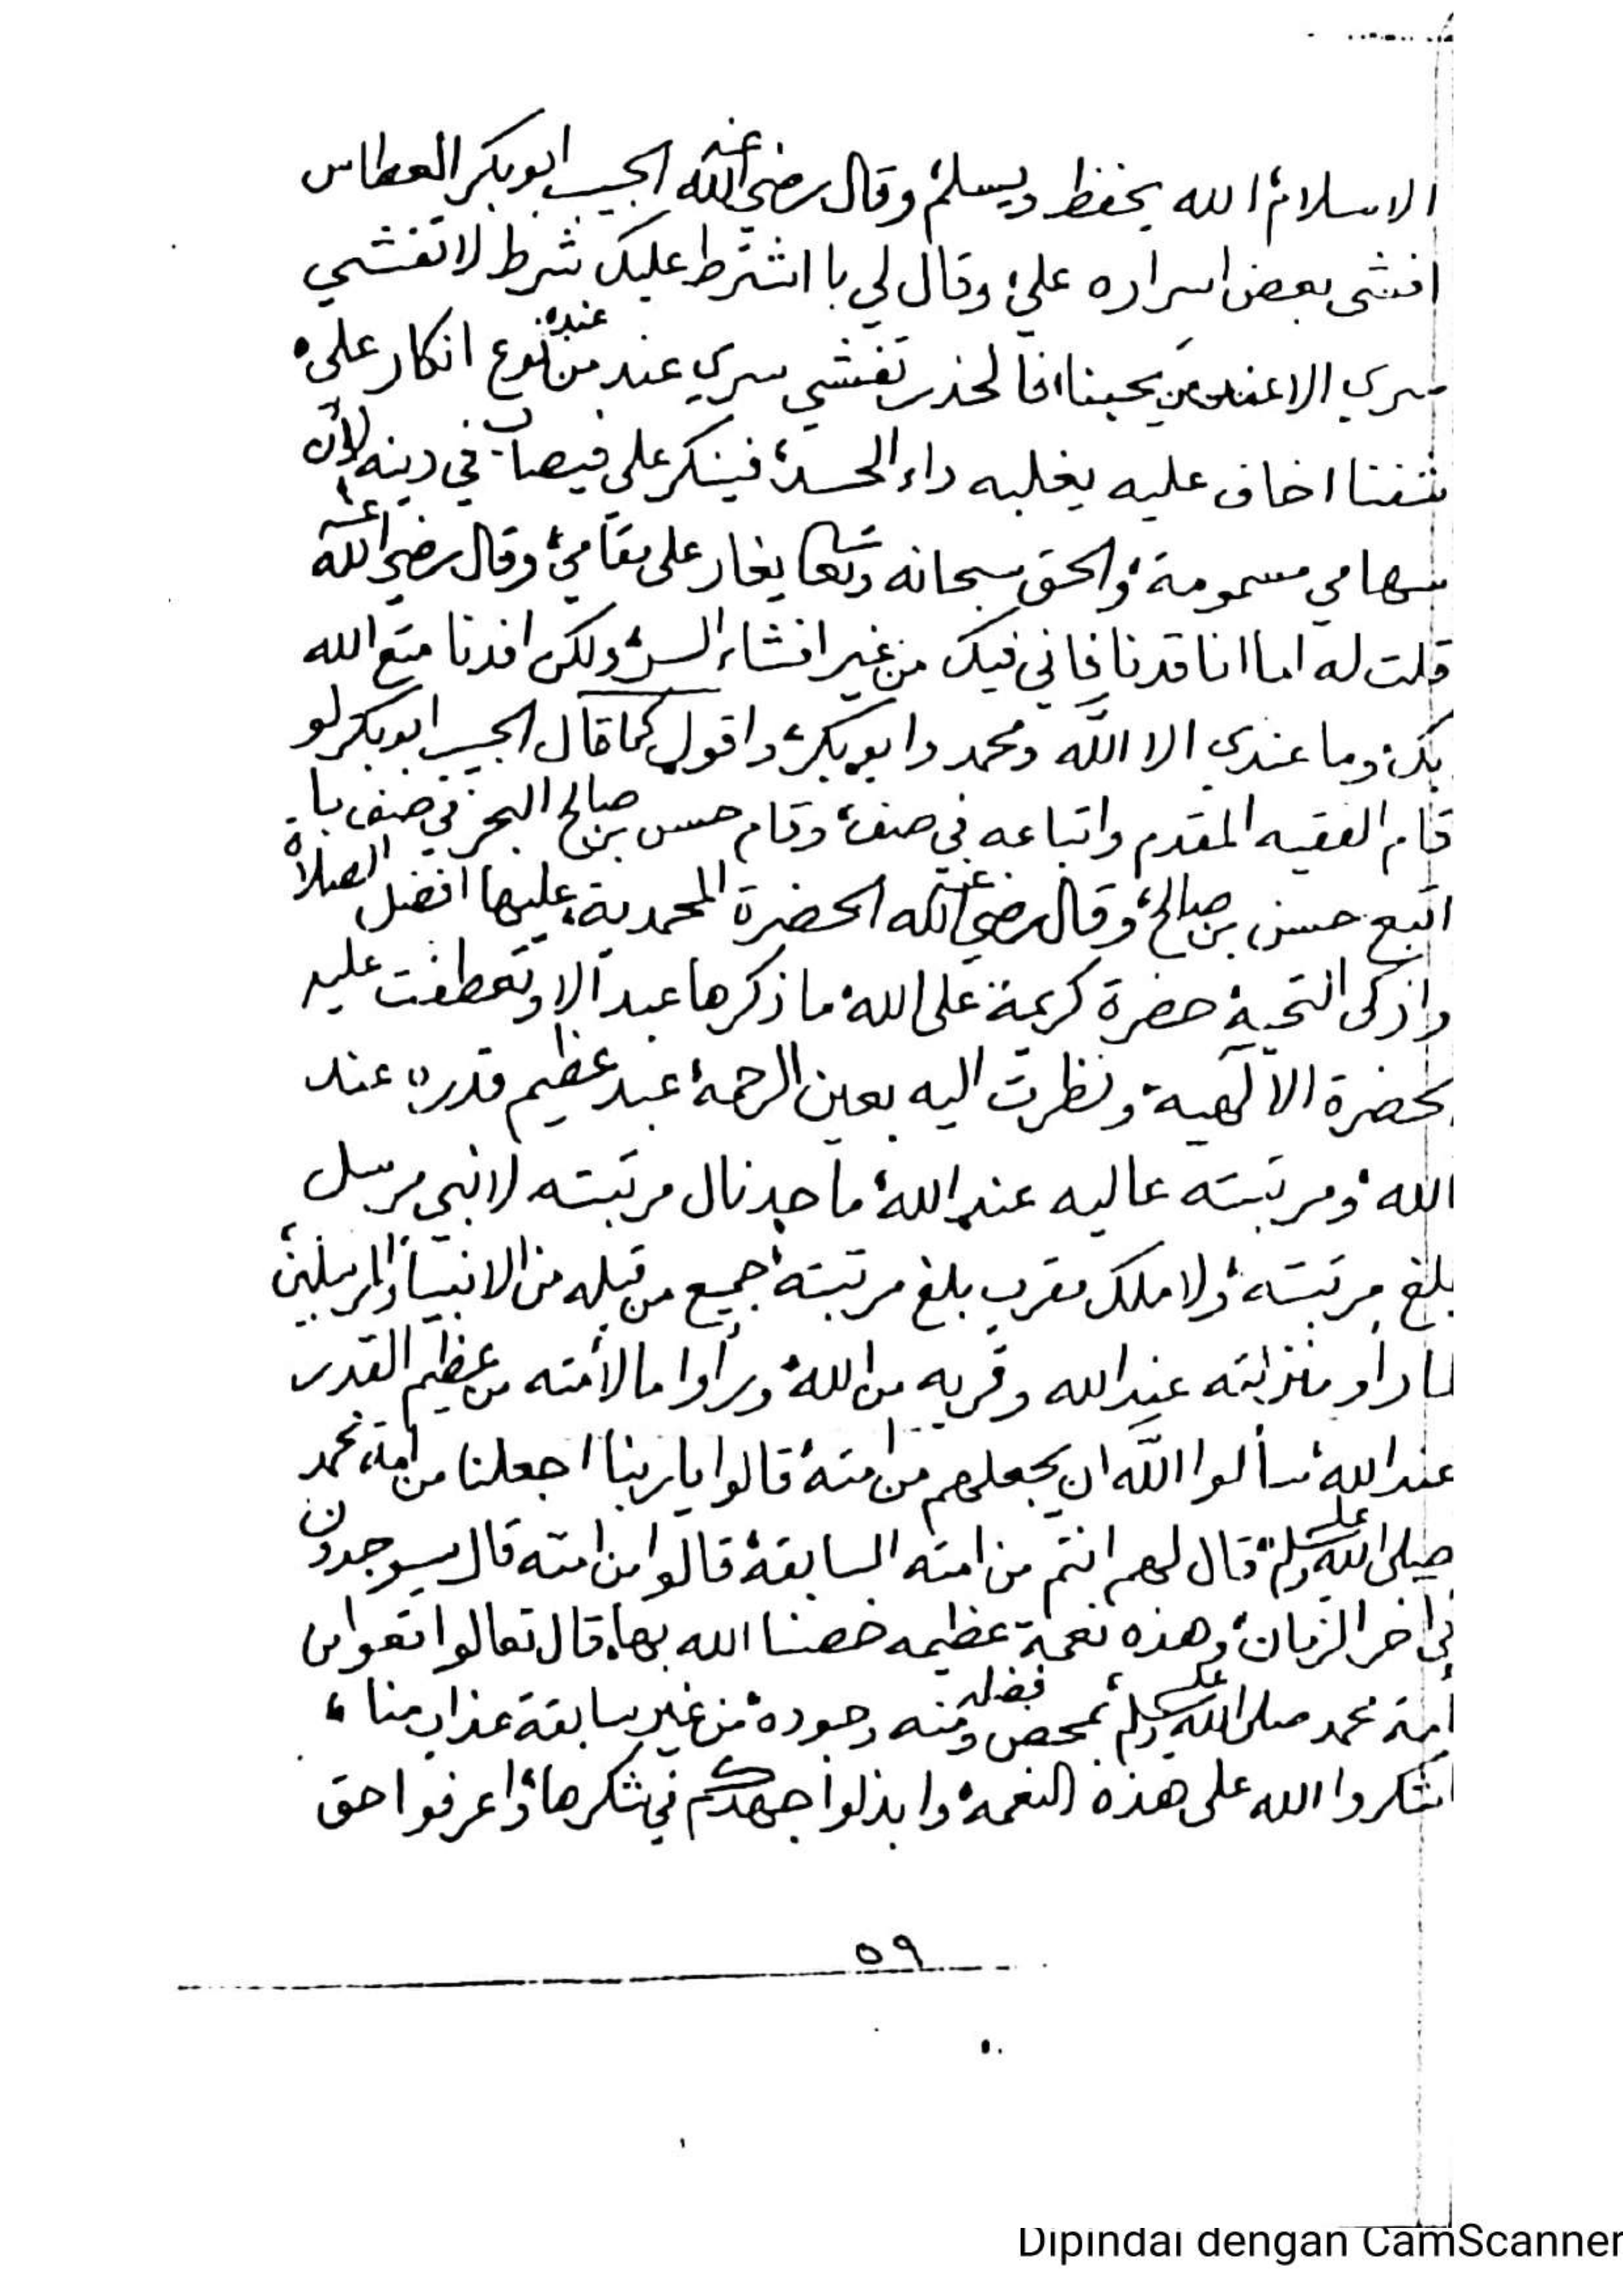 الاسلام الله يحفظ ويسلم وقال رضي الله عنه الحبيب ابوبكر العطاس
افشى بعض اسراره علي وقال لي با اشترط عليك شرط لا تفشي
سري الا عند من يحبنا فالحذر تفشي سري عند من عنده نوع انكار علي
شفنا اخاف عليه يغلبه داء الحسد فينكر علي فيصاب في دينه لأن
سهامي مسمومة والحق سبحانه وتعا يغار على مقامي وقال رضي الله عنه
قلت له اما انا قدنا فاني فيك من غير افشاء السر ولكن افدنا متع الله
بك وما عندي الا الله ومحمد وابوبكر واقول كما قال الحبيب ابوبكر لو
قام الفقيه المقدم واتباعه في صف وقام حسن بن صالح البحر في صف با
اتبع حسن بن صالح وقال رضي الله عنه الحضرة المحمدية عليها افضل الصلاة
وازكى التحية حضرة كريمة على الله ما ذكرها عبد الا وتعطفت عليه
الحضرة الالهية ونظرت اليه بعين الرحمة عبد عظيم قدره عند
الله ومرتبته عاليه عند الله ماحد نال مرتبته لا نبي مرسل
بلغ مرتبته ولا ملك مقرب بلغ مرتبته جميع من قبله من الانبياء والمرسلين
لما راو منزلته عند الله وقربه من الله وراوا ما لأمته من عظيم القدر
عند الله سألوا الله ان يجعلهم من امته قالوا يا ربنا اجعلنا من امة محمد
صلى الله عليه وسلم قال لهم انتم من امته السابقة قالوا من امته قال سيوجدون
في اخر الزمان وهذه نعمة عظيمه خصنا الله بها قال تعالوا اتقوا من
امة محمد صلى الله عليه وسلم بمحض فضله ومنه وجوده من غير سابقة عذاب منا
اشكروا الله على هذه النعمة وابذلوا جهدكم في شكرها واعرفوا حق
٥٩
Dipindai dengan CamScanner